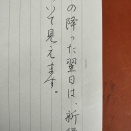 の降った翌日は、新緑
いて見えます。